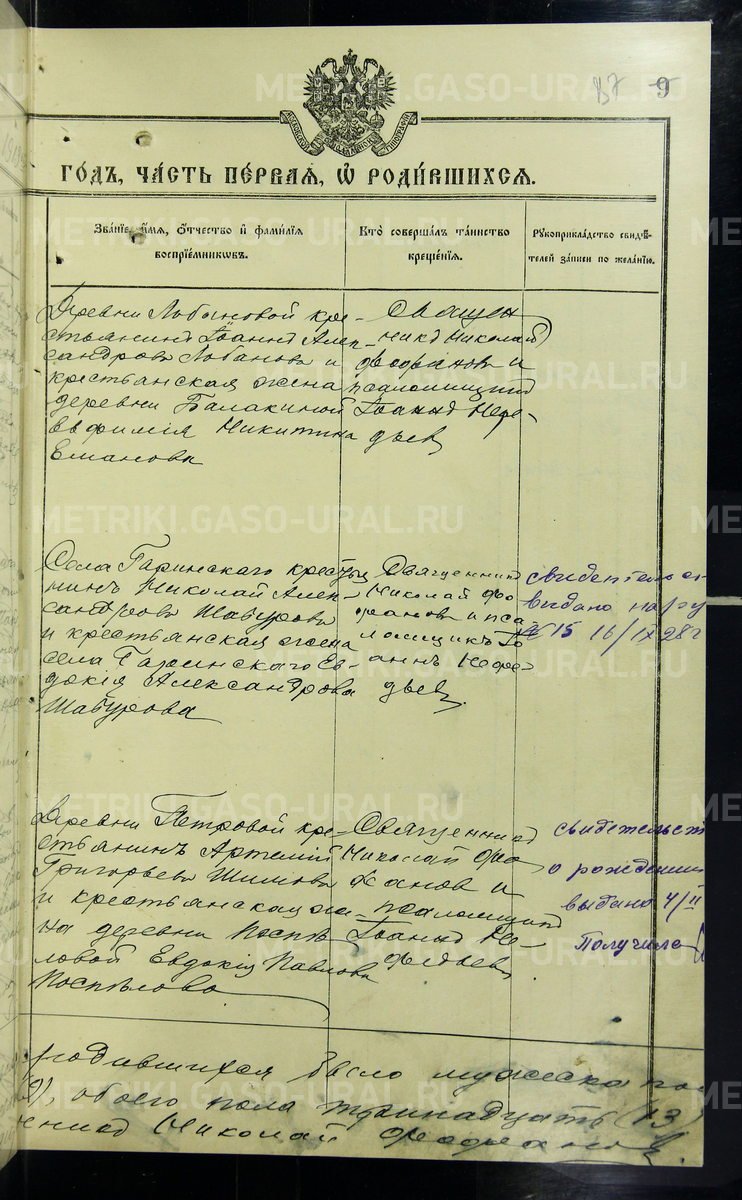 87 9
ГОДЪ, ЧАСТЬ ПЕРВАЯ, Ѡ РОДИВШИХСЯ.
Званіе, имя, отчество и фамилія
воспріемниковъ.
Кто совершалъ таинство
крещенія.
Рукоприкладство свидѣ-
телей записи по желанію.
Деревни Лобановой кре-
стьянинъ Іоаннъ Алек-
сандровъ Лобановъ и
крестьянская жена
деревни Балакиной
Евфимія Никитина
Еманова
Священ
никъ Николай
Феофановъ и
псаломщикъ
Іоаннъ Нефе-
дьев
Села Гаринскаго крестья
нинъ Николай Алек-
сандровъ Шабуровъ
и крестьянская жена
села Гаринскаго Ев-
докія Александрова
Шабурова
Священникъ
Николай Фео
фановъ и пса
ломщикъ Іо
аннъ Нефе-
дьев
свидетельст
выдано на руки
№ 15 16/IX 28г
Деревни Петровой кре-
стьянинъ Артемій
Григорьевъ Шимовъ
и крестьянская же-
на деревни Поспѣ
ловой Евдокія Павлова
Поспѣлова
Священникъ
Николай Фео
фанов и
псаломщикъ
Іоаннъ Не-
федьев
свидетельст
о рождении
выдано 4/II
Получила
родившихся было мужеска по
(9), обоего пола тринадцать (13)
енникъ Николай Феофановъ
METRIKI.GASO-URAL.RU